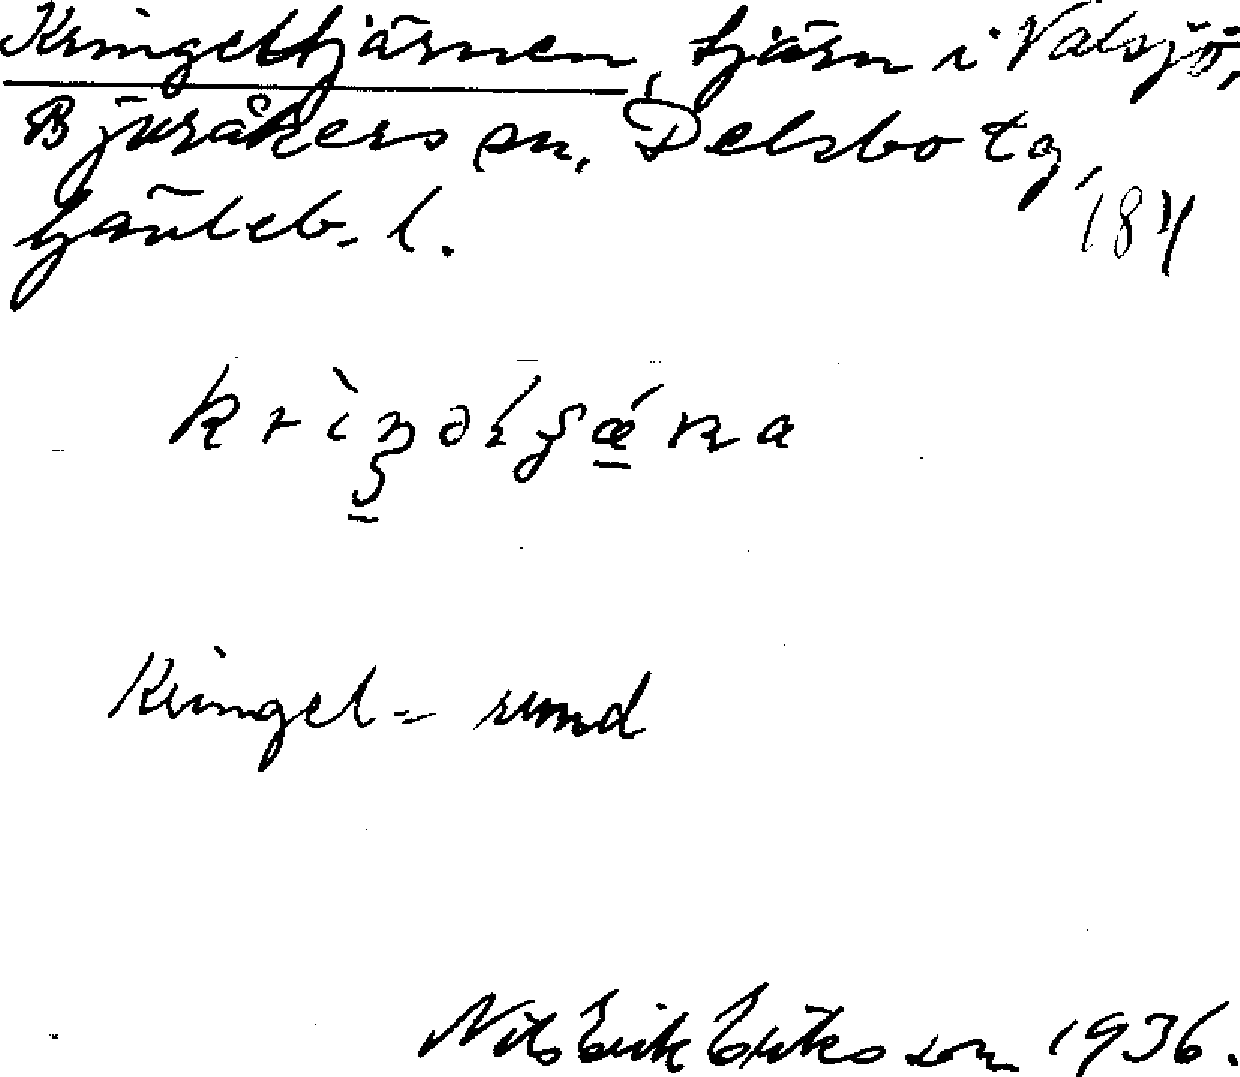 Kringeltjärnen, tjärn i Valsjö,
Bjuråkers sn, Delsbo tg,
Gävleb. l. 184
Kringel = rund
Nils Erik Eriksson 1936.